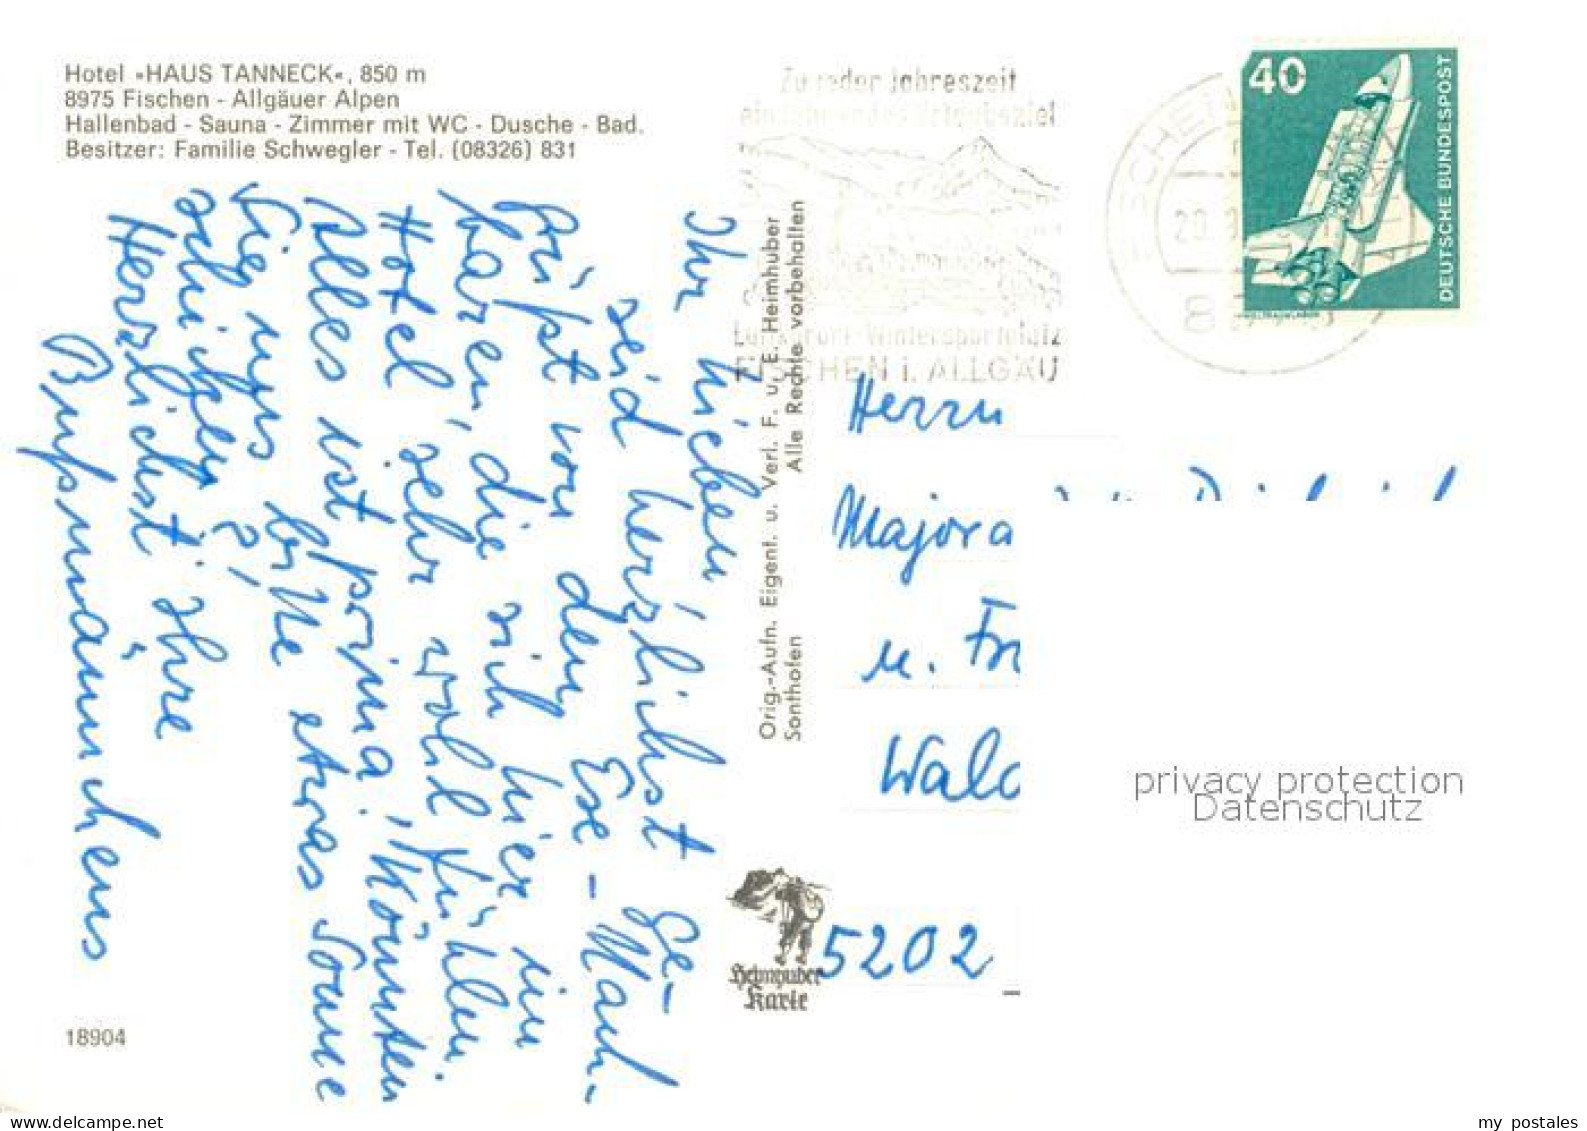 Hotel »HAUS TANNECK«, 850 m
8975 Fischen - Allgäuer Alpen
Hallenbad - Sauna - Zimmer mit WC - Dusche - Bad.
Besitzer: Familie Schwegler - Tel. (08326) 831
Ihr Lieben,
seid herzlichst ge-
grüßt von dem
haren, die sich hier im
Hotel sehr wohl fühlen.
Alles ist prima! Könnten
Sie uns bitte etwas Sonne
schicken?
Herzlichst Ihre
Orig.-Aufn. Eigent. u. Verl. F. u. E. Heimhuber
Sonthofen Alle Rechte vorbehalten
Zu jeder Jahreszeit
Luftkurort-Wintersportplatz
FISCHEN i. ALLGÄU
40
DEUTSCHE BUNDESPOST
Herrn
Majora
u. Fr
Wald
5202
Heimhuber
Karte
privacy protection
Datenschutz
18904
www.delcampe.net
my_postales